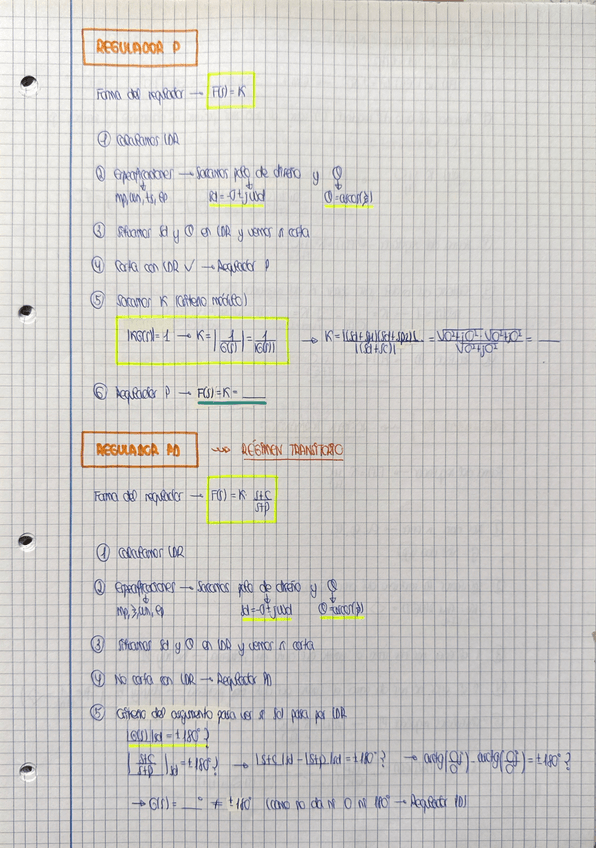 REGULADOR P
Forma del regulador → F(s) = K
① Calculamos LDR
② Especificaciones → Sacamos polo de diseño y θ
mp, ωn, ts, ep sd = -σ ± jωd θ = arcos(ξ)
③ Situamos sd y θ en LDR y vemos si corta
④ Corta con LDR ✓ → Regulador P
⑤ Sacamos K (criterio módulo)
|KG(s)| = 1 → K = |1/G(s)| = 1/|G(s)| → K =
⑥ Regulador P → F(s) = K = ___
REGULADOR PD ⇝ RÉGIMEN TRANSITORIO
Forma del regulador → F(s) = K (s+c)/(s+p)
① Calculamos LDR
② Especificaciones → Sacamos polo de diseño y θ
mp, ξ, ωn, ep sd = -σ ± jωd θ = arcos(ξ)
③ Situamos sd y θ en LDR y vemos si corta
④ No corta con LDR → Regulador PD
⑤ Criterio del argumento para ver si sd pasa por LDR
|G(s)|sd = ±180°?
|(s+c)/(s+p)|sd = ±180°? → |s+c|sd - |s+p|sd = ±180°? → = ±180°?
→ G(s) = ___° ≠ ±180° (como no da ni 0 ni 180° → Regulador PD)